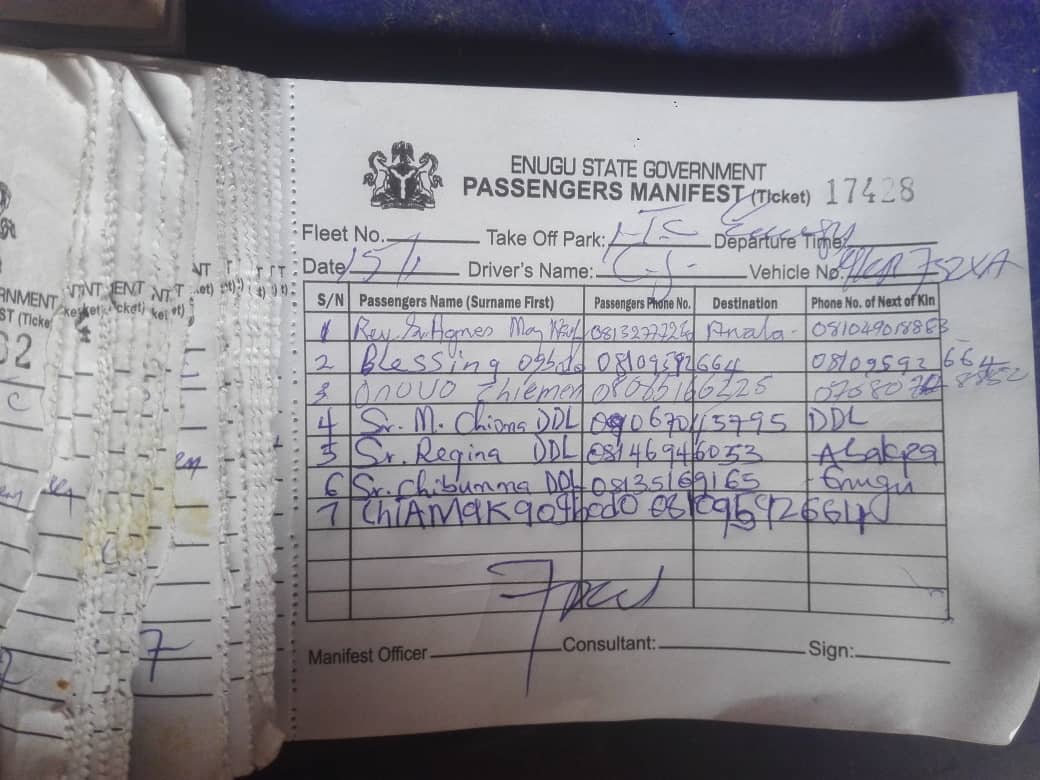 ENUGU STATE GOVERNMENT
PASSENGERS MANIFEST (Ticket) 17428
Fleet No. Take Off Park: Departure Time
Date 15/11 Driver's Name: C-J- Vehicle No. 752XA
S/N Passengers Name (Surname First) Passengers Phone No. Destination Phone No. of Next of Kin
1 Rev. Sr. Agnes May 081049018883
2 Blessing Ogbodo 08109592664 08109592664
3 Onovo Chiemen 08065166225
4 Sr. M. Chioma DDL DDL
5 Sr. Regina DDL 08146946053 Abakpa
6 Sr. Chibunma DDL 08135169165 Enugu
7 08109592664
Manifest Officer Consultant: Sign:
RNMENT
ST (Ticke
62
7